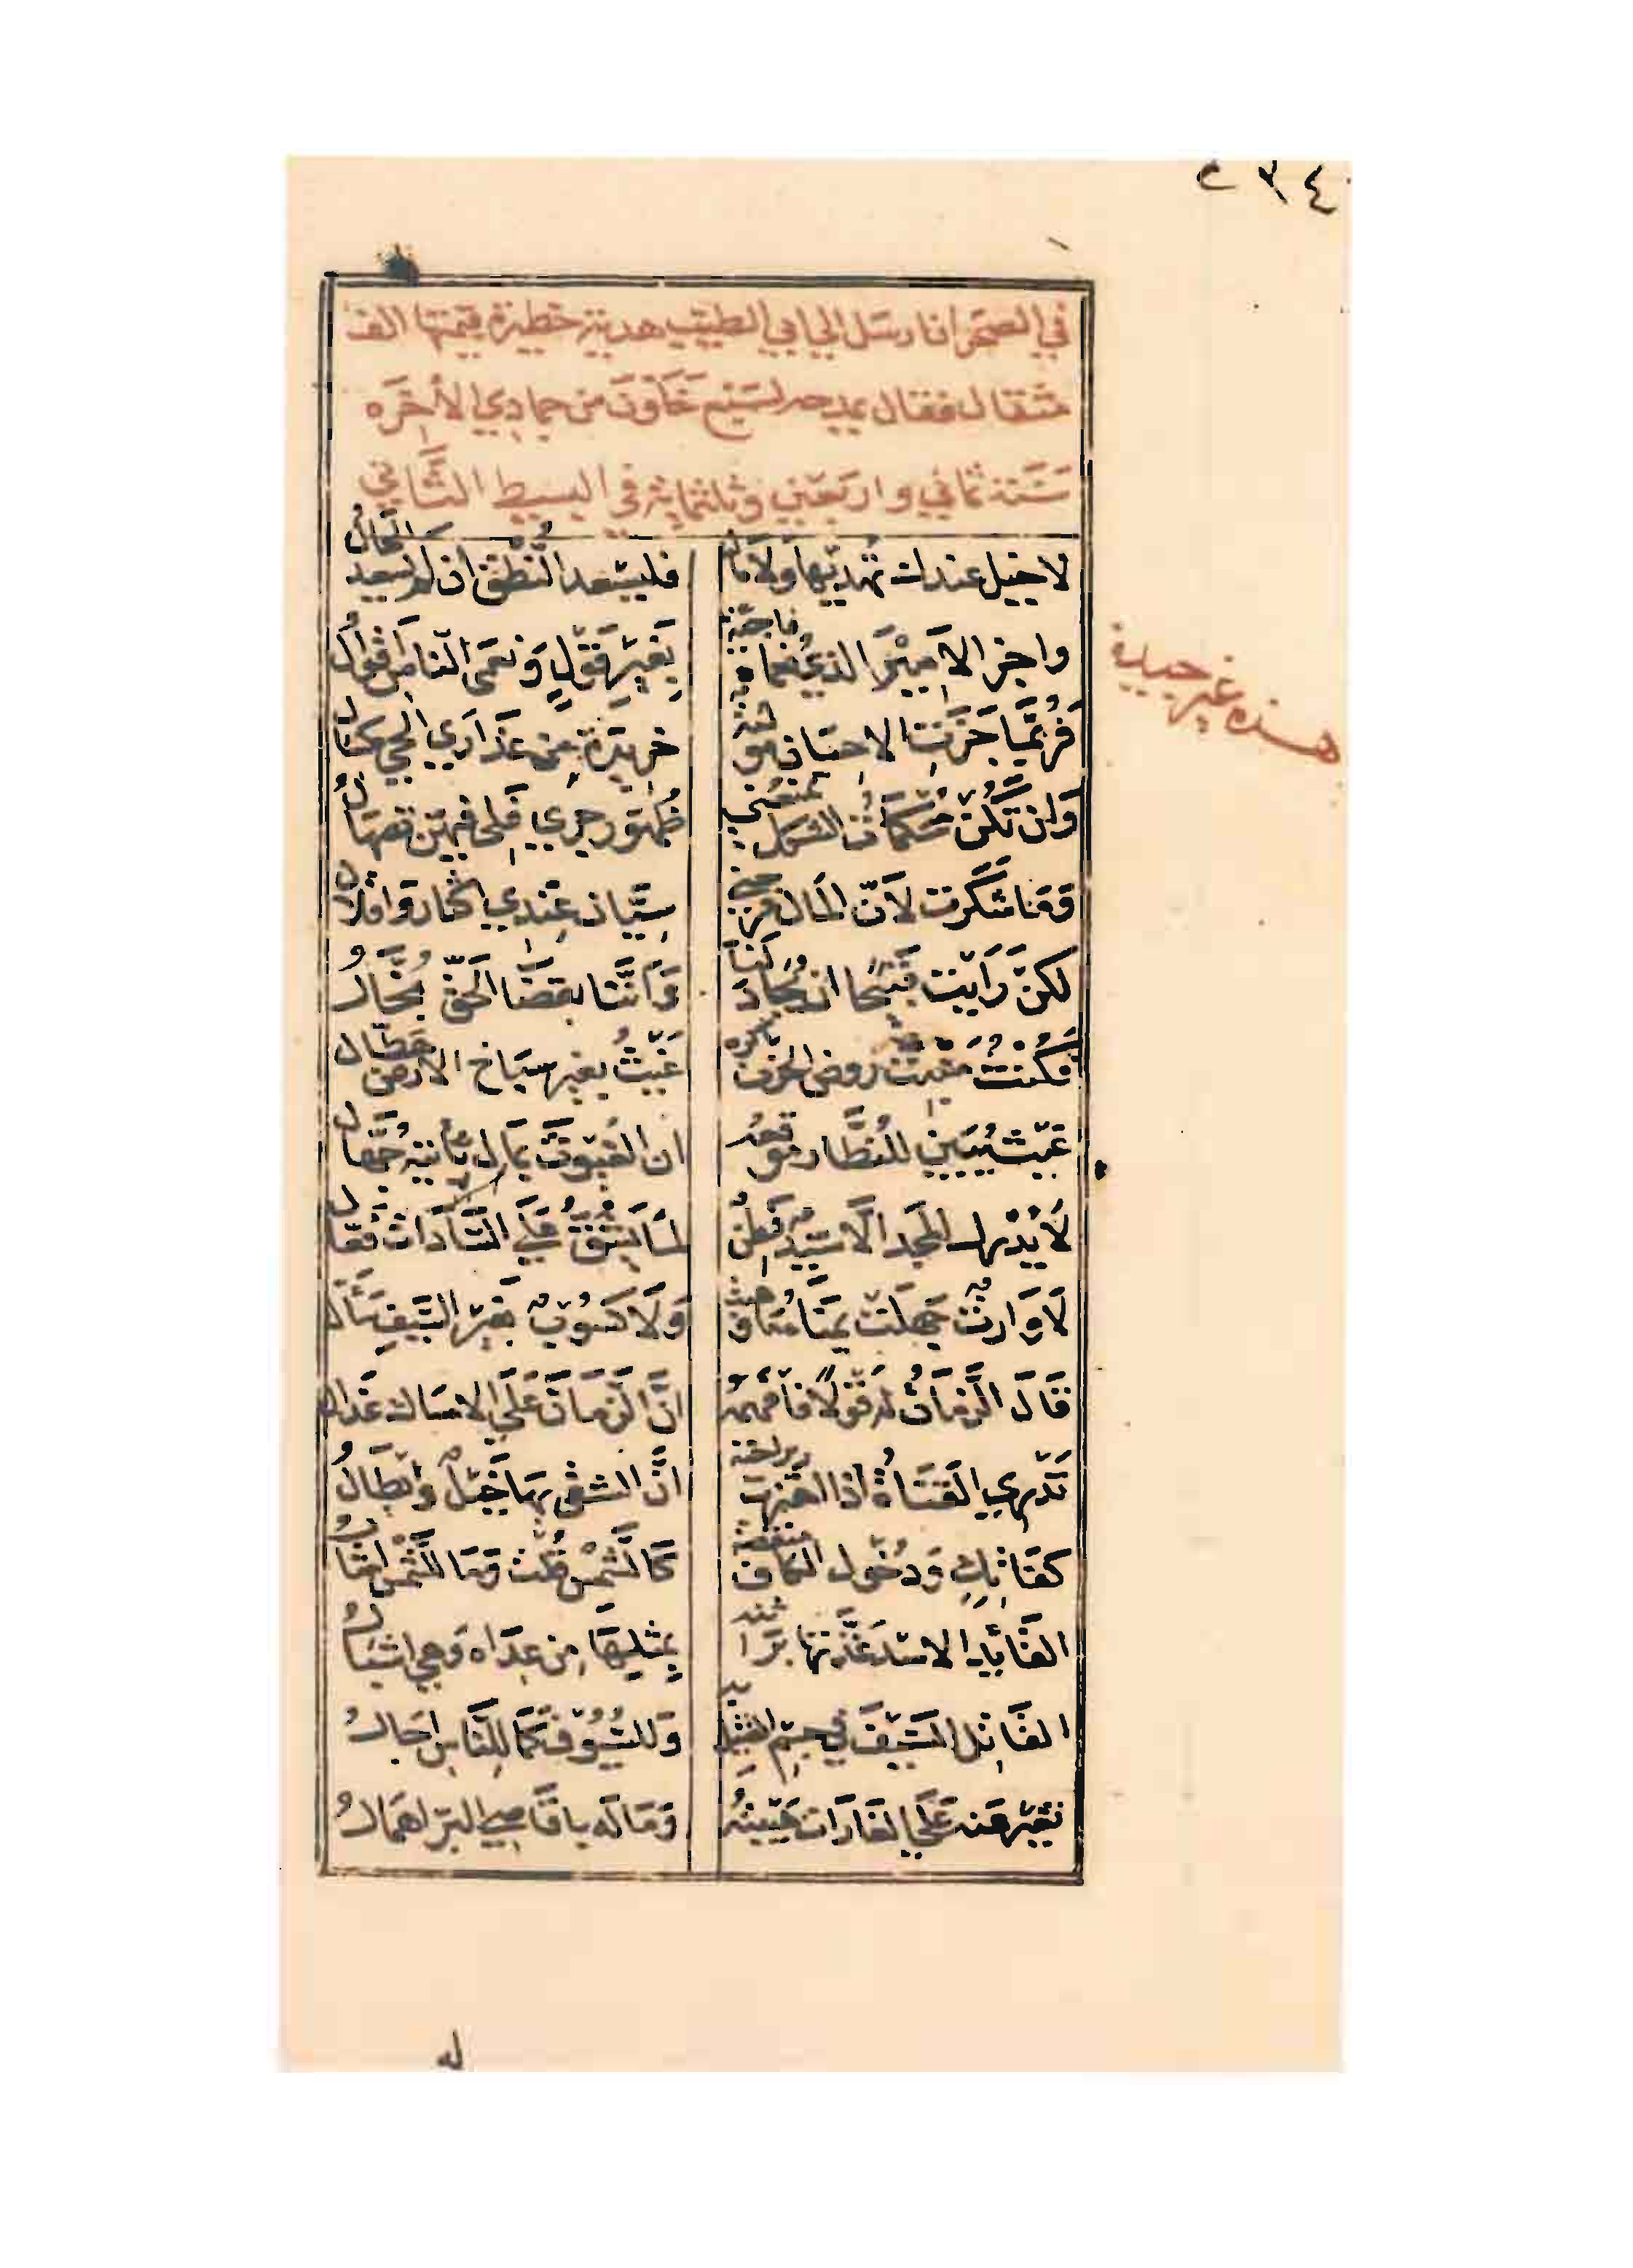 ٢٣٤
في الصحرا فارسل الي ابي الطيب هدية خطيرة قيمتها الف
مثقال فقال يمدحه لسبع خلون من جمادي الأخره
سنة ثماني واربعين وثلثماية في البسيط الثاني
لا خيل عندك تهديها ولا مال فليسعد النطق ان لم يسعد الحال
واجز الامير الذي نعماه فاجئة بغير قول ونعمى الناس اقوال
هذه غير جيدة
فربما جزت الاحسان موليه خريدة من عذاري الحي مكسال
وان تكن محكمات الشكل تمنعني ظهور جري فلي فيهن تصهال
وما شكرت لان المال فرحني سيان عندي اكثار واقلال
لكن رايت قبيحا ان يجاد لنا واننا بقضا الحق بخال
فكنت منبت روض الحزن باكره غيث بغير سباخ الارض هطال
غيث يبين للنظار موقعه ان الغيوث بما تأتيه جهال
لا يدرك المجد الا سيد فطن لما يشق على السادات فعال
لا وارث جهلت يمناه ما وهبت ولا كسوب بغير السيف سئال
قال الزمان له قولا فافهمه ان الزمان على الامساك عذال
تدري القناة اذا اهتزت براحته ان الشقي بها خيل وابطال
كفاتك ودخول الكاف منقصة كالشمس قلت وما للشمس امثال
القائد الاسد غذتها براثنه بمثلها من عداه وهي اشبال
القاتل السيف في جسم القتيل به وللسيوف كما للناس اجال
تغير عنه على الغارات هيبته وماله باقاصي البر اهمال
له